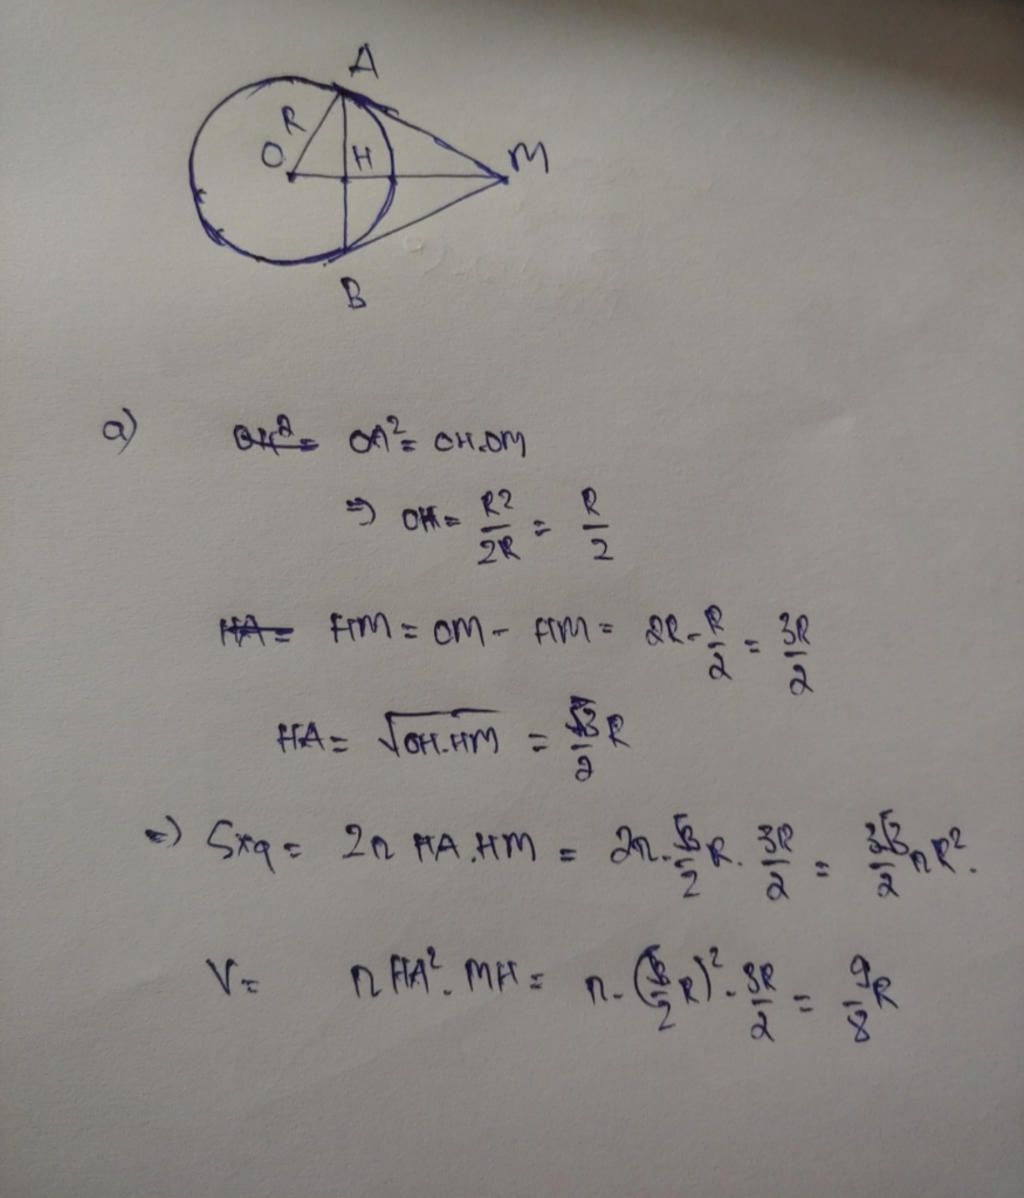 A
R
O
H
M
B
a) OH²= OA²= OH.OM
=> OH = R²/2R = R/2
HA= HM = OM - HM = 2R - R/2 = 3R/2
HA = √OH.HM = √3/2 R
=> Sxq = 2π HA.HM = 2π.√3/2 R. 3R/2 = 3√3/2 πR².
V= π HA². MH = π.(√3/2 R)². 3R/2 = 9/8 R